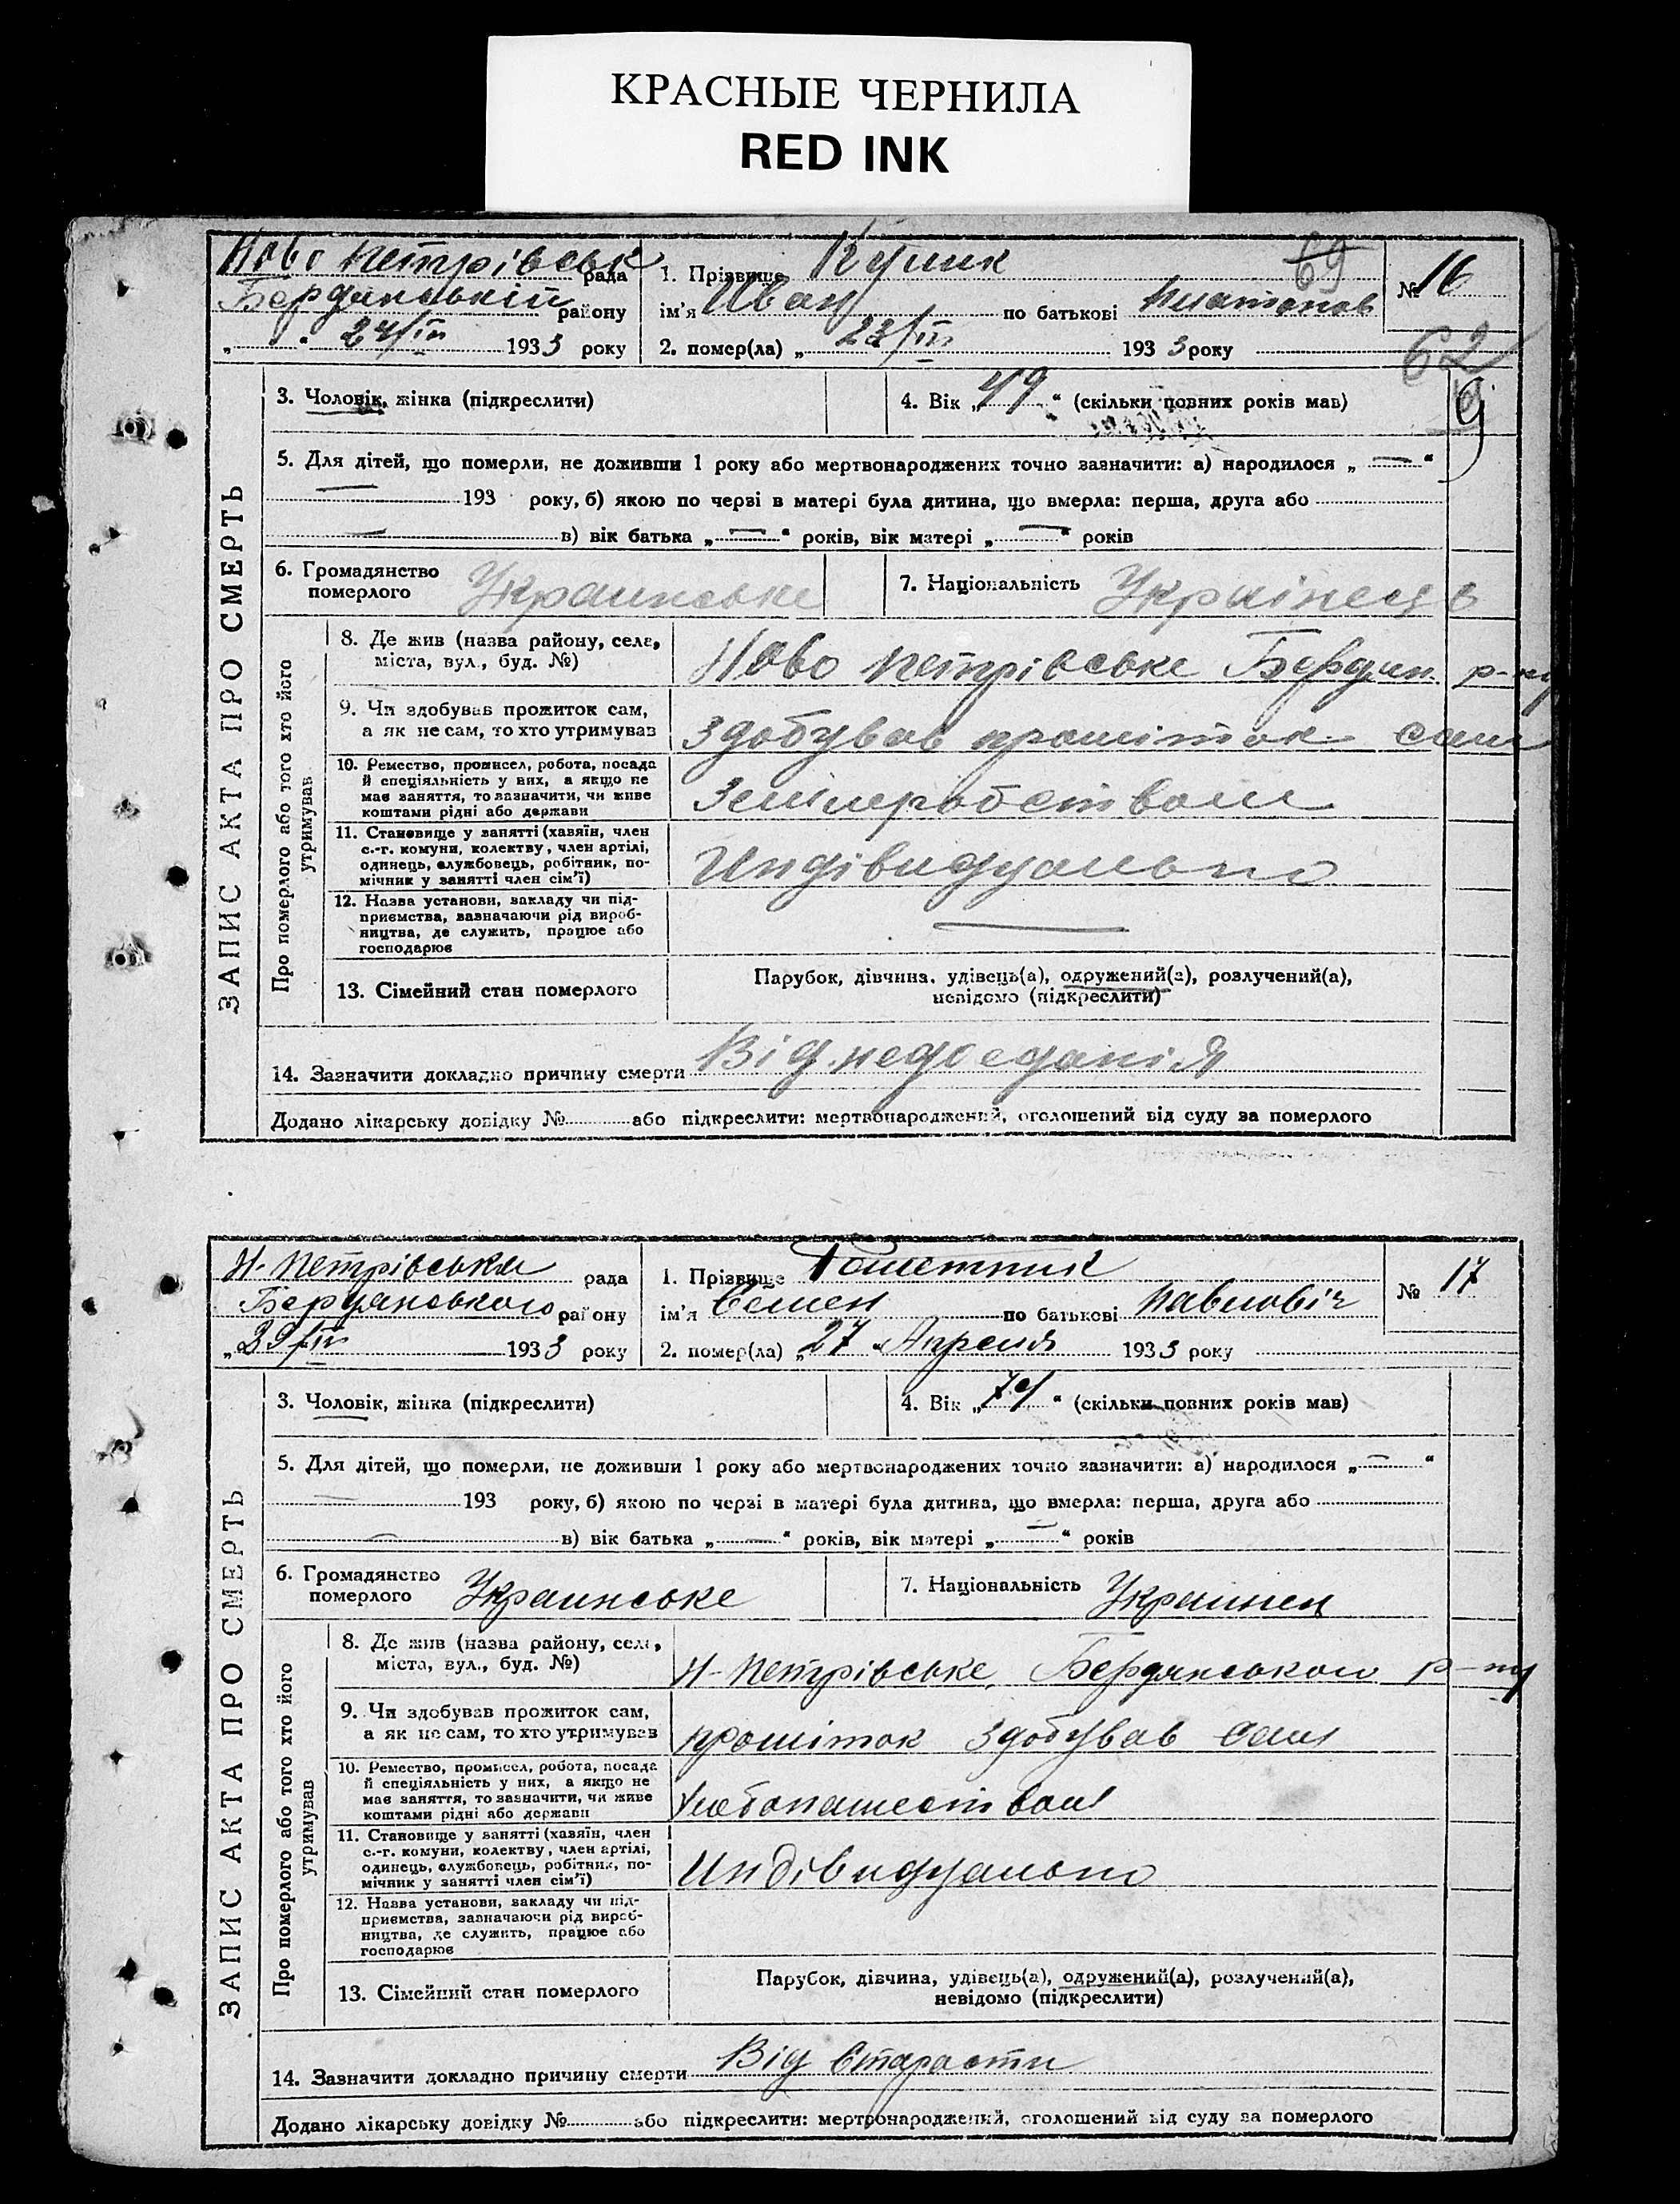 КРАСНЫЕ ЧЕРНИЛА
RED INK
Ново Петрівськ рада
Бердянський району
„ “ 24/IV 1933 року
1. Прізвище Кулик
ім'я Иван по батькові Платонов
2. помер(ла) „ 23/IV 1933 року
№ 16
69
62
ЗАПИС АКТА ПРО СМЕРТЬ
3. Чоловік, жінка (підкреслити)
4. Вік „49“ (скільки повних років мав)
5. Для дітей, що померли, не доживши 1 року або мертвонароджених точно зазначити: а) народилося „ — “
— 193 року, б) якою по черзі в матері була дитина, що вмерла: перша, друга або
— в) вік батька „ — “ років, вік матері „ — “ років
6. Громадянство померлого Украинське
7. Національність Україінець
Про померлого або того хто його утримував
8. Де жив (назва району, села, міста, вул., буд. №) Ново Петрівське Бердян. р-ну
9. Чи здобував прожиток сам, а як не сам, то хто утримував Здобував прошіток сам
10. Ремество, промисел, робота, посада
й спеціяльність у них, а якщо не
має заняття, то зазначити, чи живе
коштами рідні або держави
Земмлеробством
11. Становище у занятті (хазяїн, член
с.-г. комуни, колективу, член артілі,
одинець, службовець, робітник, по-
мічник у занятті член сім'ї)
Индівидуально
12. Назва установи, закладу чи під-
приємства, зазначаючи рід вироб-
ництва, де служить, працює або
господарює
—
13. Сімейний стан померлого
Парубок, дівчина, удівець(а), одружений(а), розлучений(а),
невідомо (підкреслити)
14. Зазначити докладно причину смерти Від недоеданія
Додано лікарську довідку № або підкреслити: мертвонароджений, оголошений від суду за померлого
Н-Петрівська рада
Бердянського району
„29/IV 1933 року
1. Прізвище
ім'я Семен по батькові Павловіч
2. помер(ла) „27 “ Апреля 1933 року
№ 17
ЗАПИС АКТА ПРО СМЕРТЬ
3. Чоловік, жінка (підкреслити)
4. Вік „ “ (скільки повних років мав)
5. Для дітей, що померли, не доживши 1 року або мертвонароджених точно зазначити: а) народилося „ — “
— 193 року, б) якою по черзі в матері була дитина, що вмерла: перша, друга або
— в) вік батька „ — “ років, вік матері „ — “ років
6. Громадянство померлого Украинське
7. Національність Украинец
Про померлого або того хто його утримував
8. Де жив (назва району, села, міста, вул., буд. №) Н-Петрівське, Бердянського р-ну
9. Чи здобував прожиток сам, а як не сам, то хто утримував прошіток здобував сам
10. Ремество, промисел, робота, посада
й спеціяльність у них, а якщо не
має заняття, то зазначити, чи живе
коштами рідні або держави
Хлебопашеством
11. Становище у занятті (хазяїн, член
с.-г. комуни, колективу, член артілі,
одинець, службовець, робітник, по-
мічник у занятті член сім'ї)
Индівидуально
12. Назва установи, закладу чи під-
приємства, зазначаючи рід вироб-
ництва, де служить, працює або
господарює
13. Сімейний стан померлого
Парубок, дівчина, удівець(а), одружений(а), розлучений(а),
невідомо (підкреслити)
14. Зазначити докладно причину смерти Від Старости
Додано лікарську довідку № або підкреслити: мертвонароджений, оголошений від суду за померлого